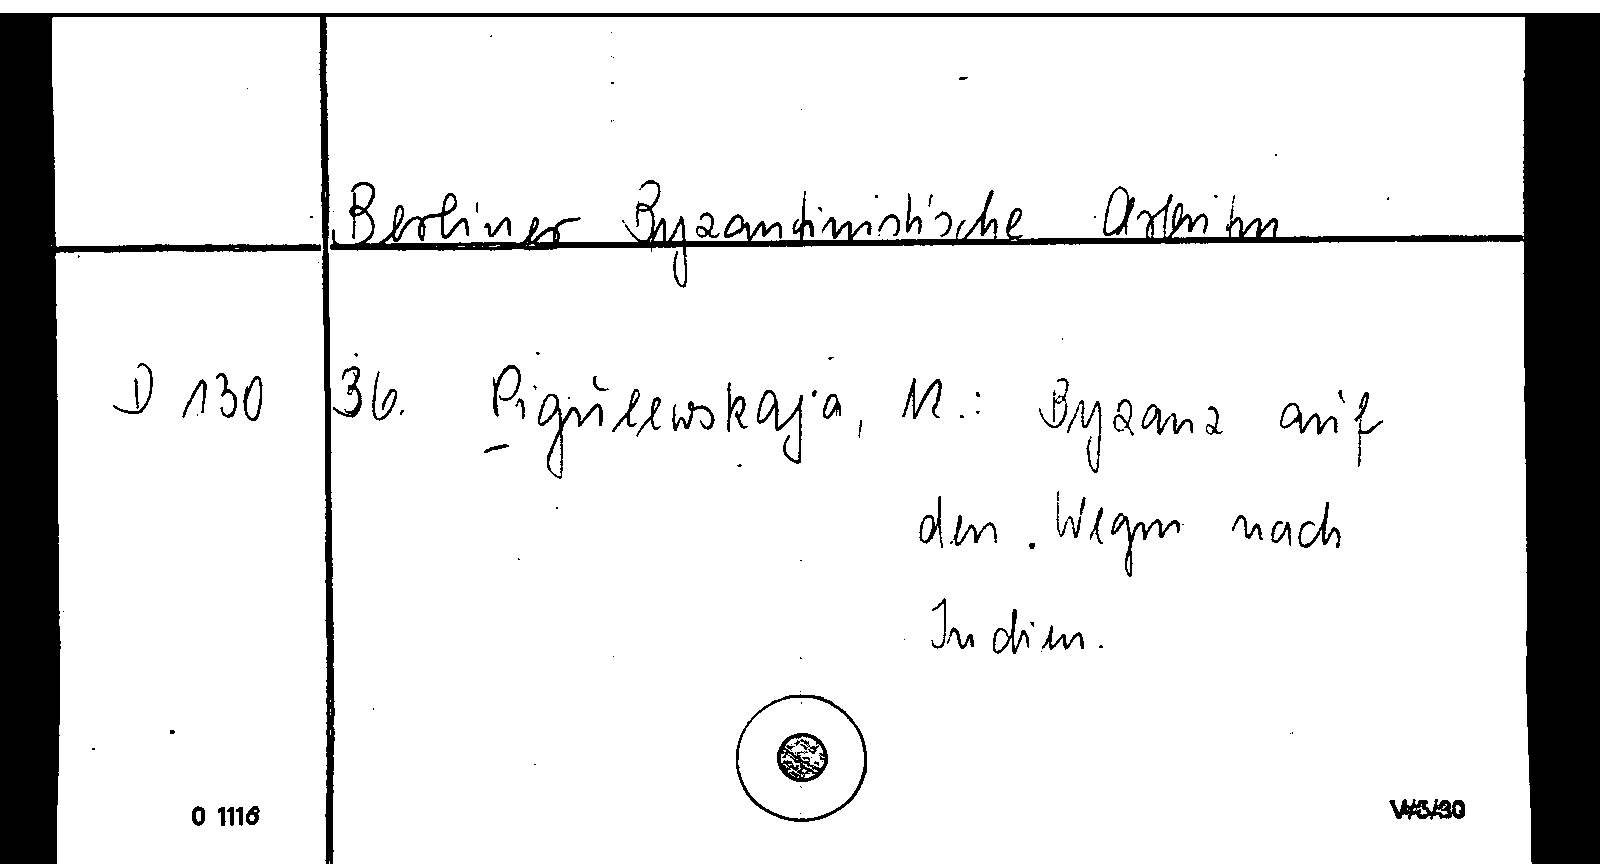 Berliner Byzantinistische Arbeiten
D 130 36. Pigulewskaja, N.: Byzanz auf
den Wegen nach
Indien.
0 1116